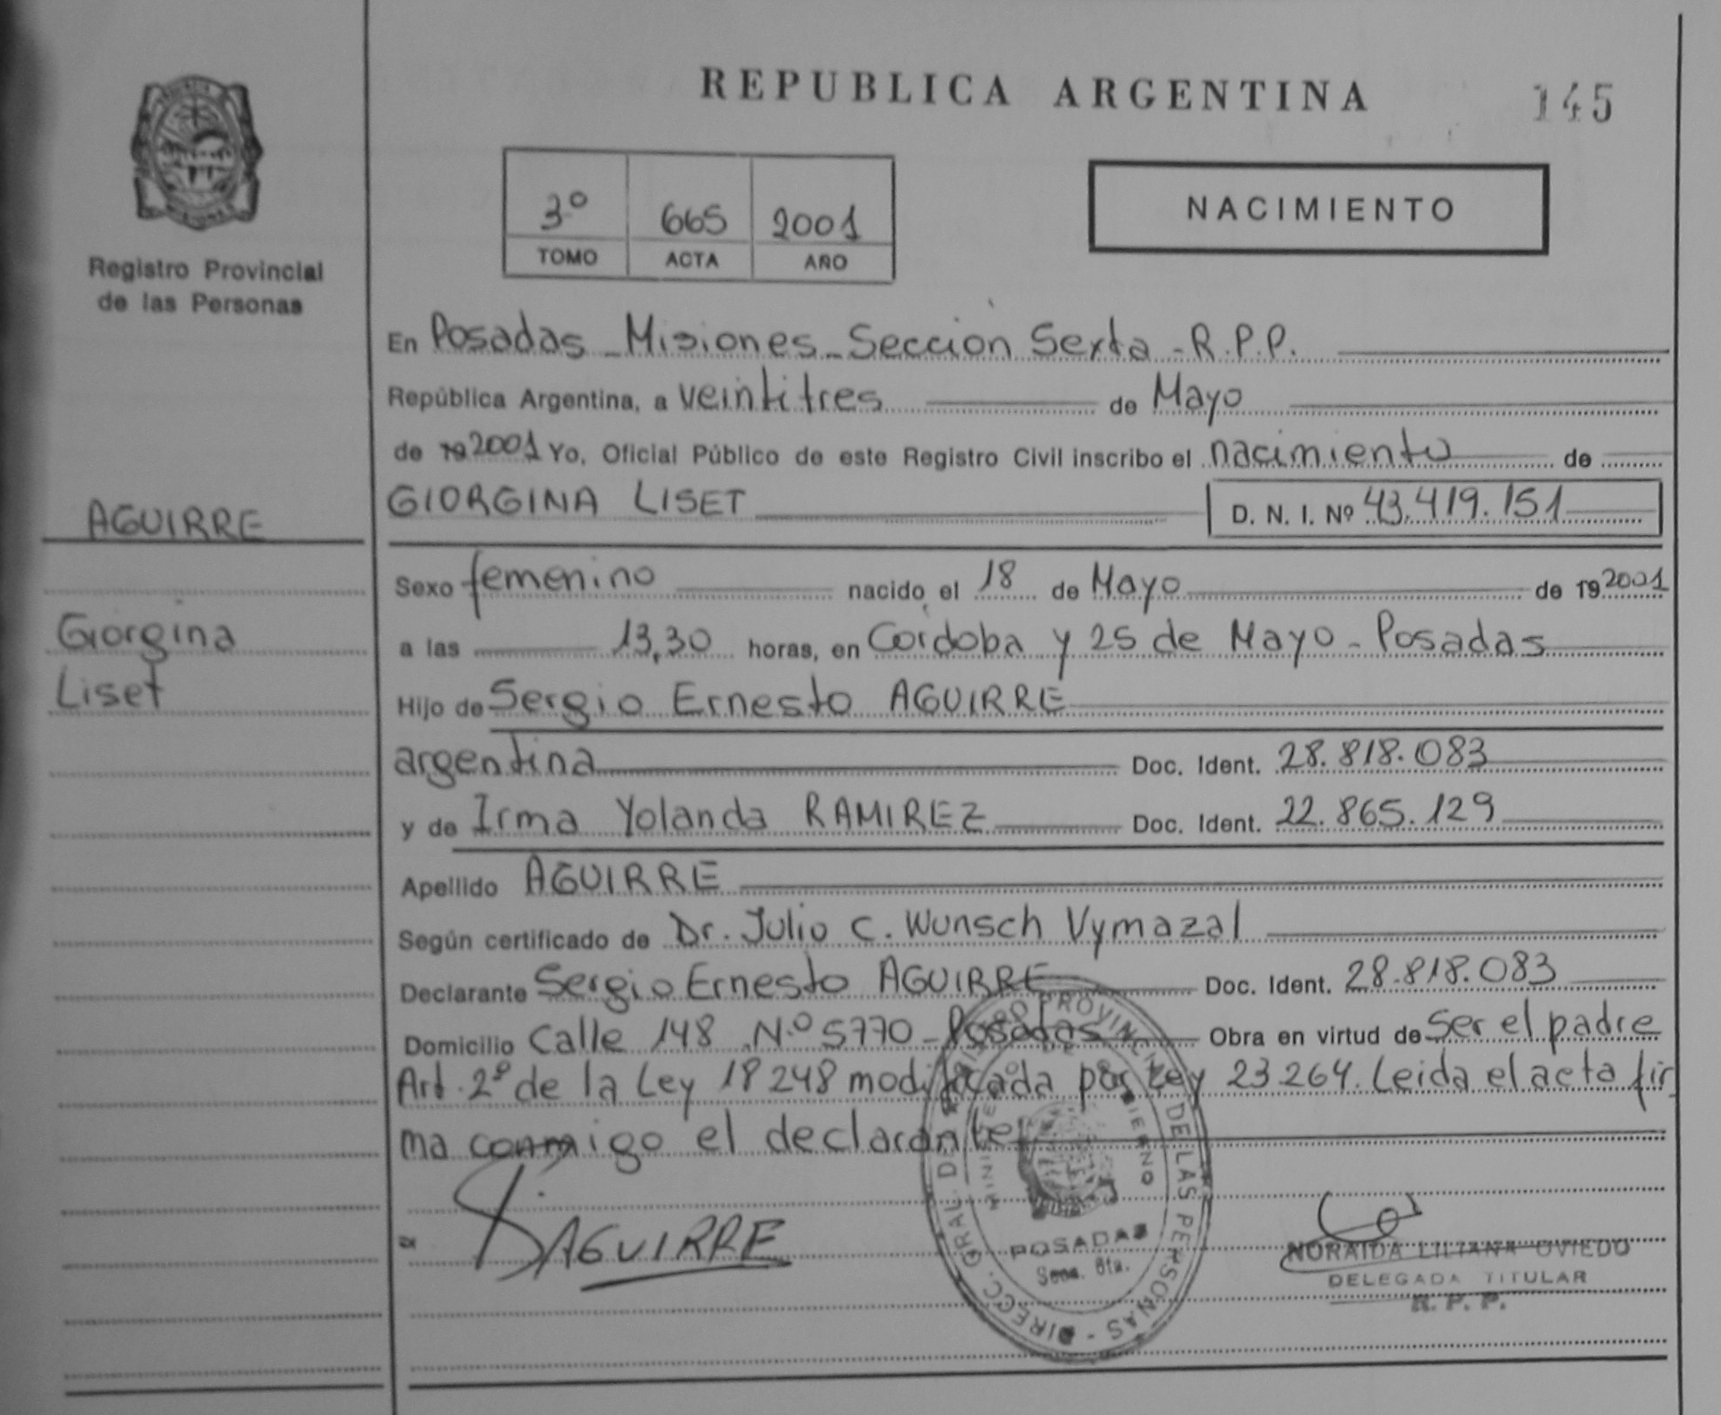 REPUBLICA ARGENTINA
145
3º 665 2001
TOMO ACTA AÑO
NACIMIENTO
Registro Provincial
de las Personas
En Posadas - Misiones - Sección Sexta - R.P.P.
República Argentina, a veintitres de Mayo
de 19 2001 Yo, Oficial Público de este Registro Civil inscribo el nacimiento de
AGUIRRE
GIORGINA LISET D. N. I. Nº 43.419.151
Sexo femenino nacido el 18 de Mayo de 19 2001
Giorgina
Liset
a las 13,30 horas, en Córdoba y 25 de Mayo - Posadas
Hijo de Sergio Ernesto AGUIRRE
argentina Doc. Ident. 28.818.083
y de Irma Yolanda RAMIREZ Doc. Ident. 22.865.129
Apellido AGUIRRE
Según certificado de Dr. Julio C. Wunsch Vymazal
Declarante Sergio Ernesto AGUIRRE Doc. Ident. 28.818.083
Domicilio Calle 148 N.º 5770 - Posadas Obra en virtud de ser el padre
Art. 2º de la Ley 18248 modificada por Ley 23264. Leida el acta fir
ma conmigo el declarante
S AGUIRRE
DIRECC. GRAL. DEL REGISTRO PROVINCIAL DE LAS PERSONAS
MINISTERIO DE GOBIERNO
POSADAS
Secc. 6ta.
NORAIDA LILIANA OVIEDO
DELEGADA TITULAR
R. P. P.